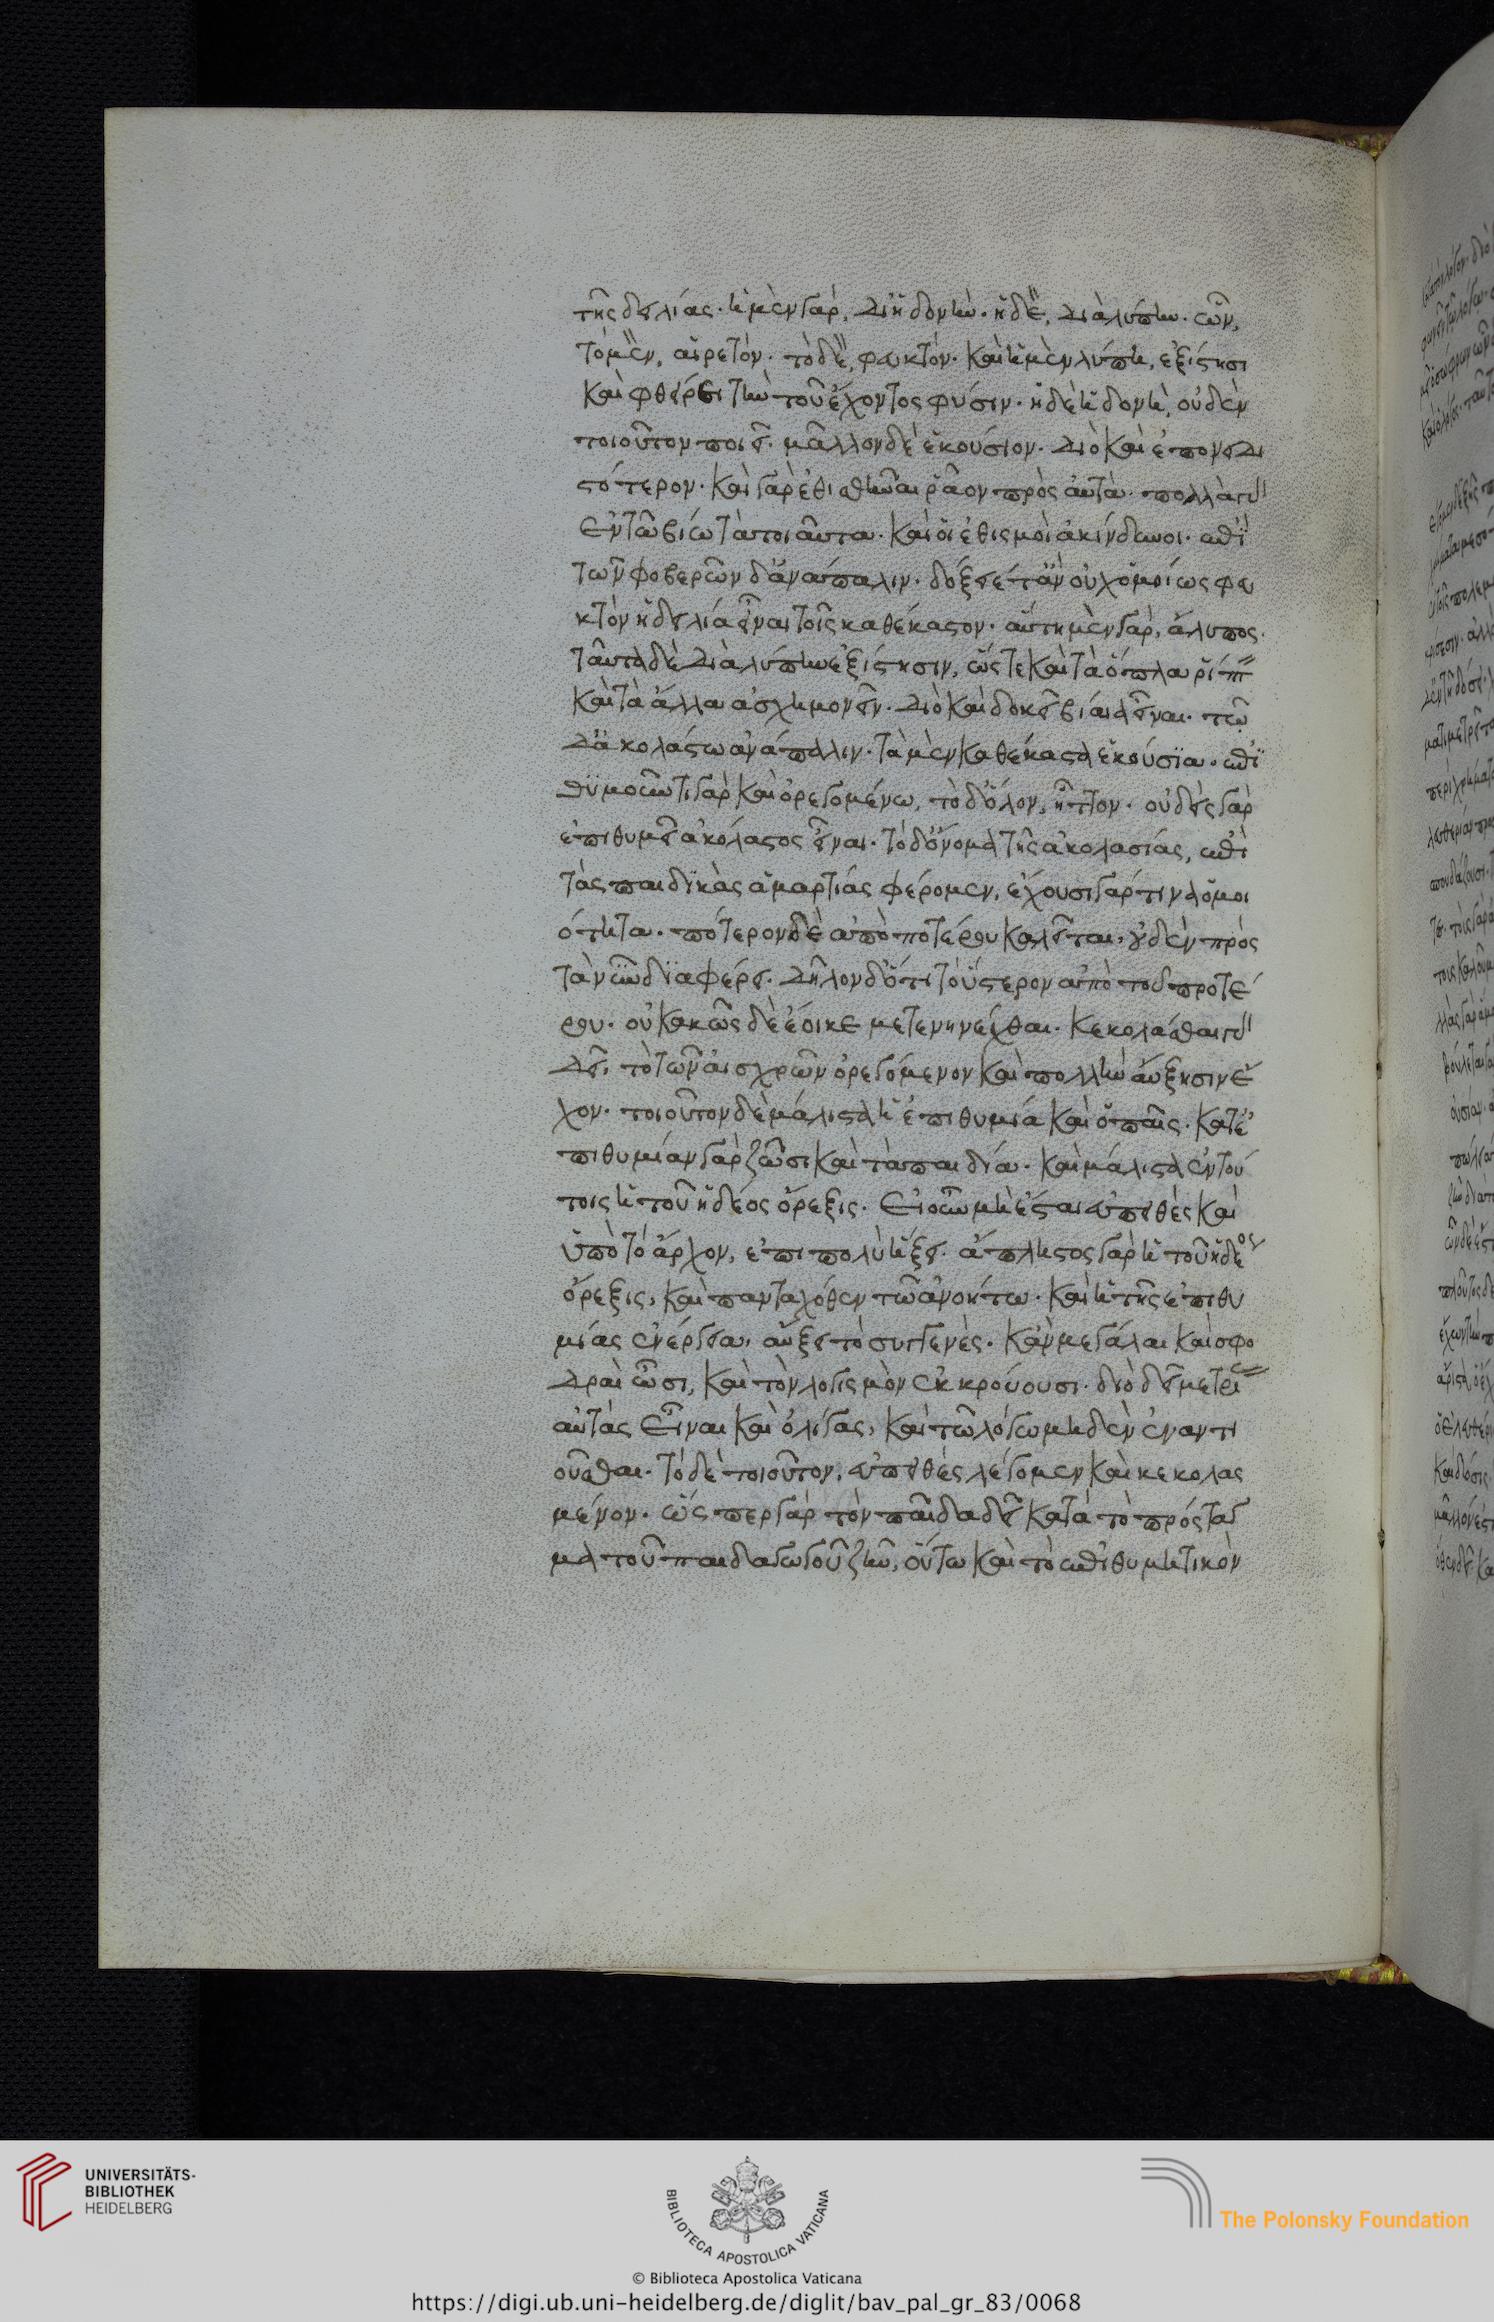 τῆς δειλίας· ἡ μὲν γὰρ, δι' ἡδονὴν· ἡ δὲ, διὰ λύπην· ὧν,
τὸ μὲν, αἱρετόν· τὸ δὲ, φευκτόν· καὶ ἡ μὲν λύπη, ἐξίστησι
καὶ φθείρει τὴν τοῦ ἔχοντος φύσιν· ἡ δὲ ἡδονὴ, οὐδὲν
τοιοῦτον ποιεῖ· μᾶλλον δὲ ἑκούσιον· διὸ καὶ ἐπονειδι
στότερον· καὶ γὰρ ἐθισθῆναι ῥᾷον πρὸς αὐτὰ· πολλὰ γὰρ
ἐν τῷ βίῳ τὰ τοιαῦτα· καὶ οἱ ἐθισμοὶ ἀκίνδυνοι· ἐπὶ
τῶν φοβερῶν δ' ἀνάπαλιν· δόξειε δ' ἂν οὐχ ὁμοίως φευ
κτὸν ἡ δειλία εἶναι τοῖς καθέκαστον· αὕτη μὲν γὰρ, ἄλυπος·
ταῦτα δὲ διὰ λύπην ἐξίστησιν, ὥστε καὶ τὰ ὅπλα ῥίπτειν
καὶ τὰ ἄλλα ἀσχημονεῖν· διὸ καὶ δοκεῖ βίαια εἶναι· τῷ
δ' ἀκολάστῳ ἀνάπαλιν· τὰ μὲν καθέκαστα ἑκούσια· ἐπι
θυμοῦντι γὰρ καὶ ὀρεγομένῳ, τὸ δ' ὅλον, ἧττον· οὐδεὶς γὰρ
ἐπιθυμεῖ ἀκόλαστος εἶναι· τὸ δ' ὄνομα τῆς ἀκολασίας, ἐπὶ
τὰς παιδικὰς ἁμαρτίας φέρομεν, ἔχουσι γάρ τινα ὁμοι
ότητα· πότερον δὲ ἀπὸ ποτέρου καλεῖται, οὐδὲν πρὸς
τὰ νῦν διαφέρει· δῆλον δ' ὅτι τὸ ὕστερον ἀπὸ τοῦ προτέ
ρου· οὐ κακῶς δὲ ἔοικε μετενηνέχθαι· κεκολάσθαι γὰρ
δεῖ, τὸ τῶν αἰσχρῶν ὀρεγόμενον καὶ πολλὴν αὔξησιν ἔ
χον· τοιοῦτον δὲ μάλιστα ἡ ἐπιθυμία καὶ ὁ παῖς· κατ' ἐ
πιθυμίαν γὰρ ζῶσι καὶ τὰ παιδία· καὶ μάλιστα ἐν τού
τοις ἡ τοῦ ἡδέος ὄρεξις· εἰ οὖν μὴ ἔσται εὐπειθὲς καὶ
ὑπὸ τὸ ἄρχον, ἐπιπολὺ ἥξει· ἄπληστος γὰρ ἡ τοῦ ἡδέος
ὄρεξις, καὶ πανταχόθεν τῷ ἀνοήτῳ· καὶ ἡ τῆς ἐπιθυ
μίας ἐνέργεια, αὔξει τὸ συγγενές· κἂν μεγάλαι καὶ σφο
δραὶ ὦσι, καὶ τὸν λογισμὸν ἐκκρούουσι· διὸ δεῖ μετρίας
αὐτὰς εἶναι καὶ ὀλίγας, καὶ τῷ λόγῳ μηδὲν ἐναντι
οῦσθαι· τὸ δὲ τοιοῦτον, εὐπειθὲς λέγομεν καὶ κεκολας
μένον· ὥσπερ γὰρ τὸν παῖδα δεῖ κατὰ τὸ πρόσταγ
μα τοῦ παιδαγωγοῦ ζῆν, οὕτω καὶ τὸ ἐπιθυμητικὸν
UNIVERSITÄTS-
BIBLIOTHEK
HEIDELBERG
BIBLIOTECA APOSTOLICA VATICANA
The Polonsky Foundation
© Biblioteca Apostolica Vaticana
https://digi.ub.uni-heidelberg.de/diglit/bav_pal_gr_83/0068